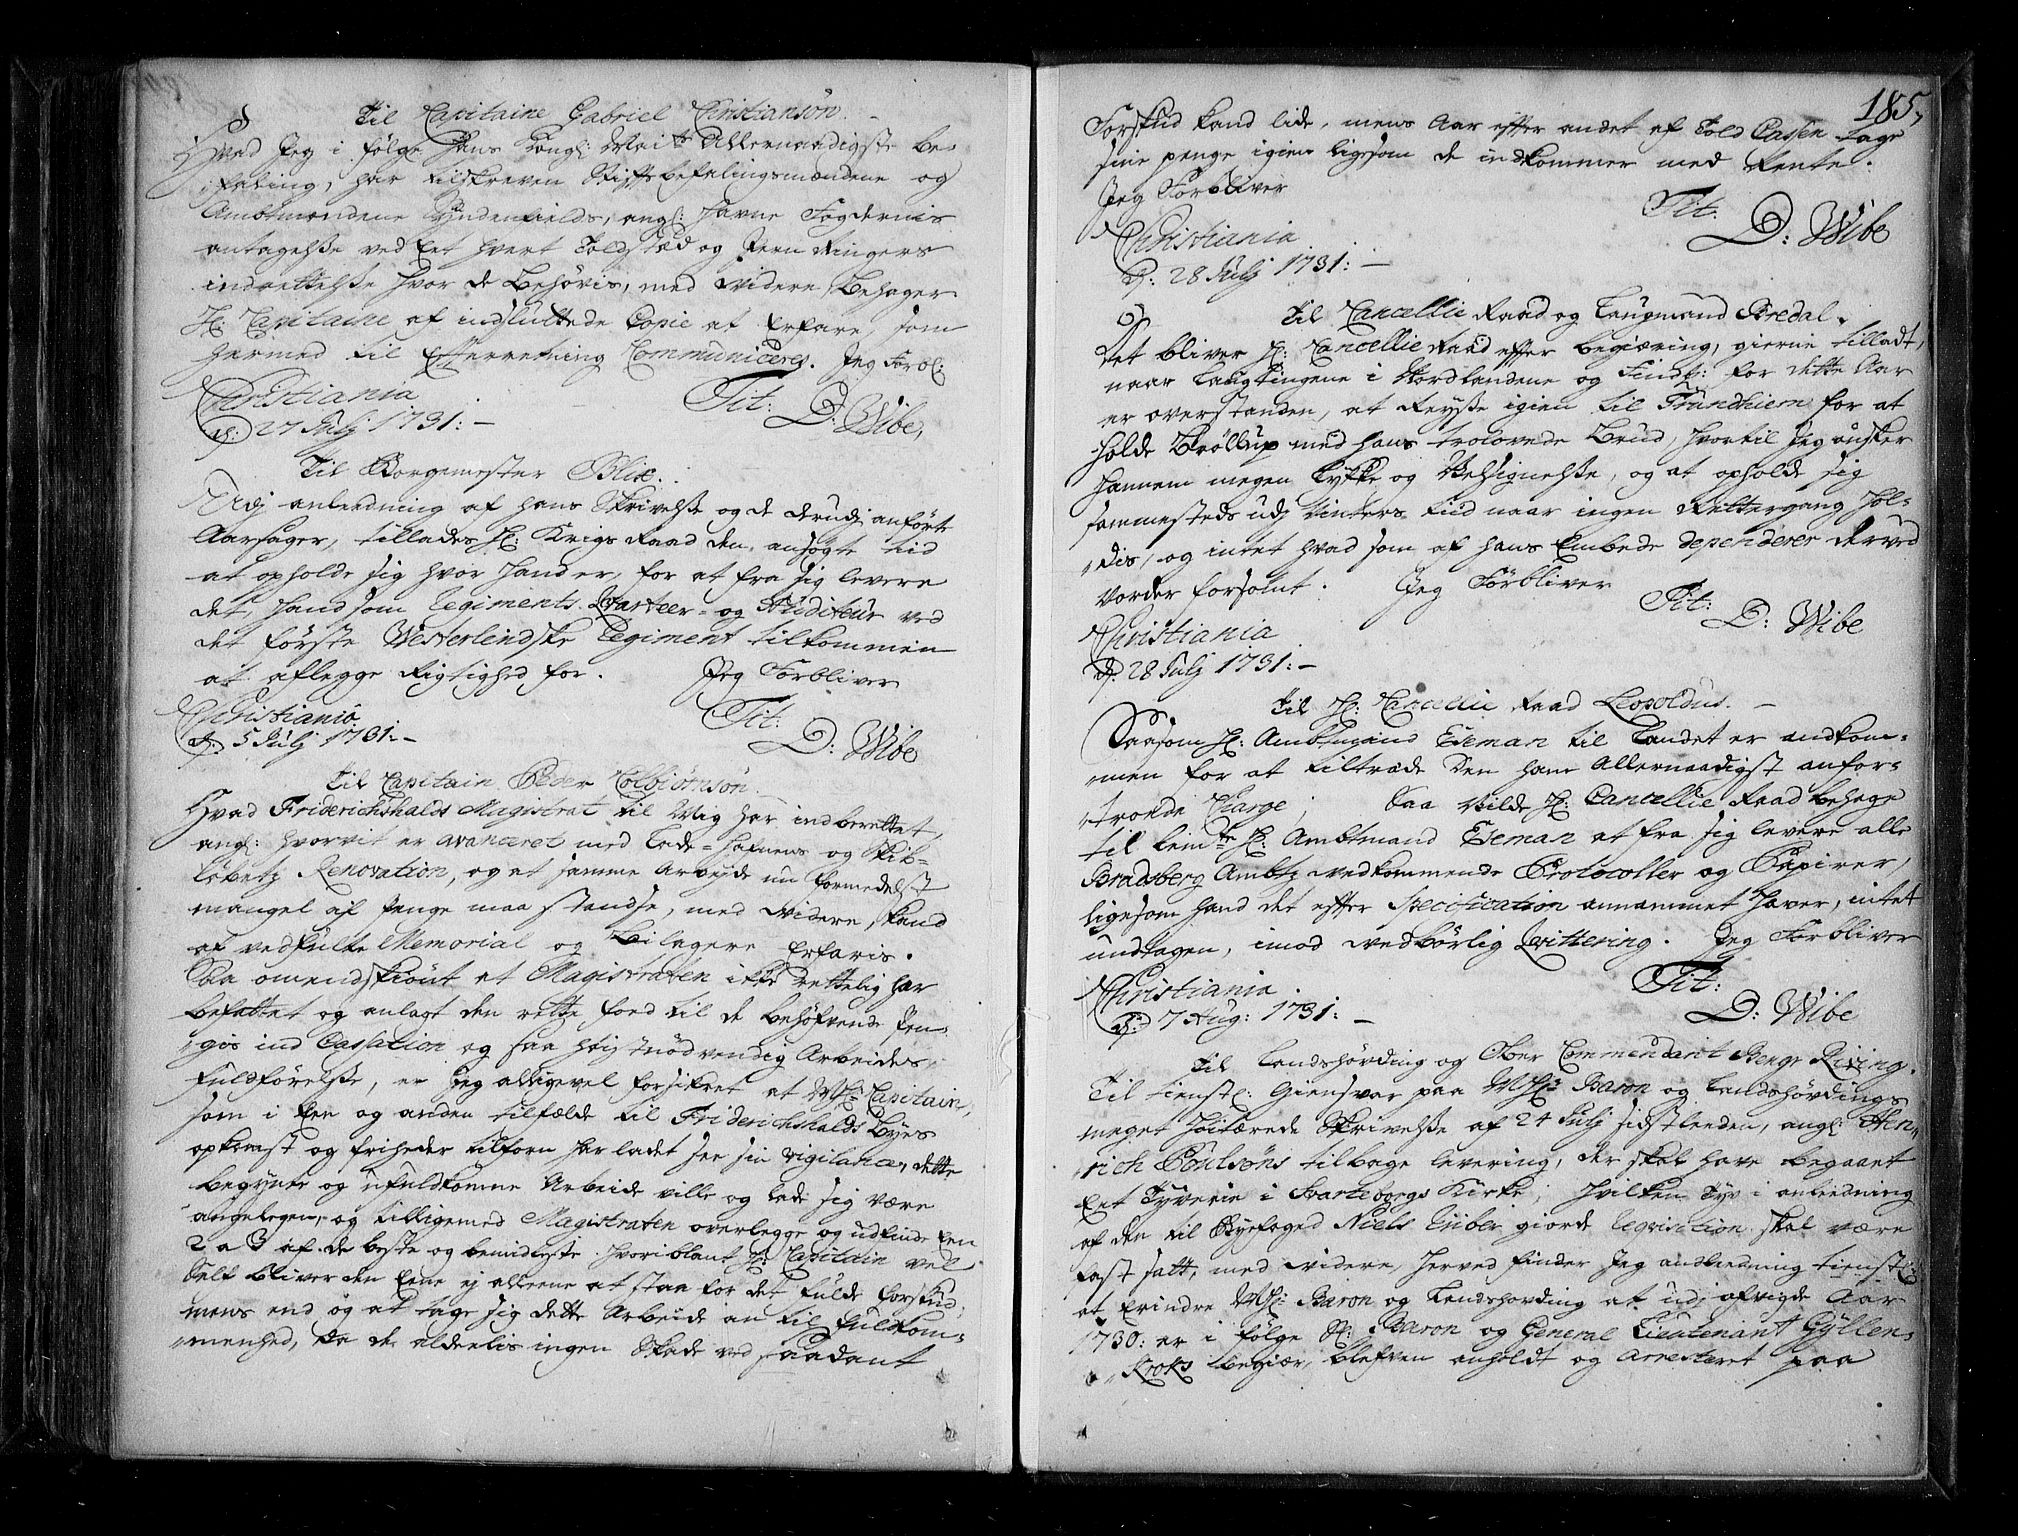 Til Capitaine Gabriel Christiansøn.
Hvad Jeg i følge Hans Kongl: Mai:ts Allernaadigste be-
faling, har tilskreven Stiftsbefalingsmændene og
Ambtmændene Syndenfields, angl: Havne Fogdernis
antagelsse ved Eet hvert Toldstæd og Jern Ringers
indrettelsse hvor de behøvis, med videre, behager
H: Capitaine af indsluttede Copie at Erfare, som
hermed til Efterretning Communiceres. Jeg Forbl:
Christiania
d: 27 Julj 1731:
Tit: D: Wibe,
Til Borgemester Blix.
Udj anledning af hans Skrivelsse og de derudj anførte
Aarsager, tillades H: Krigs Raad den ansøgte tid
at opholde sig hvor hand er, for at fra sig levere
det, hand som Regiments Qvarteer- og Auditeur ved
det første Westerlendske Regiment tilkommen
at aflegge Rigtighed for. Jeg Forbliver
Christiania
d: 5 Julj 1731:
Tit: D: Wibe
Til Capitain Peder Colbiønsøn.
Hvad Friderichshalds Magistrat til Mig har indberettet,
angl: hvorvit er avanceret med Lade-Hafnens og Skib-
løbetz Renovation, og at samme Arbejde nu formedelst
mangel af penge maa standse, med videre, kand
af vedfulte Memorial og bilagere Erfaris.
Saa omendskiønt at Magistraten ikke rettelig har
befattet og anlagt den rette foed til de behøfvende Pen-
ges ind Cassation og saa høystnødvendig Arbeides
fuldførelsse, er Jeg alligevel forsikret at MH: Capitain,
som i Een og anden tilfælde til Friderichshalds Byes
opkomst og friheder tilforn har ladet see sin vigilance, dette
begynte og ufuldkomne Arbeide ville og lade sig være
angelegen, og tilligemed Magistraten overlegge og udfinde Een
2 a 3 af de beste og bemidleste, hvoriblant H: Capitain vel
Self bliver den Eene ej alleene at staa for det fulde forskud,
mens end og at tage sig dette Arbeide an til fuldkom-
menhed, da de aldeelis ingen Skade ved saadant
185,
Forskud kand lide, mens Aar effter andet af Told Cassen tage
siine penge igien ligesom de indkommer med Rente.
Jeg Forbliver
Tit. D: Wibe
Christiania
d: 28 Julj 1731:
Til Cancellie Raad og Laugmand Bredal.
Det bliver H: Cancellie Raad effter begiæring, gierne tilladt,
naar Laugtingene i Nordlandene og Findm: for dette Aar
er overstanden, at Reysse igien til Trundhiem for at
holde Brøllup med hans trolovede Brud, hvortil Jeg ønsker
hannem megen Lykke og Velsignelsse, og at opholde sig
sammesteds udj Vinters Tiid naar ingen Rettergang hol-
dis, og intet hvad som af hans Embede dependerer derved
vorder forsømt. Jeg Forbliver
Tit: D: Wibe
Christiania
d: 28 Julj 1731:
Til H: Cancellie Raad Leopoldus.
Saasom H: Ambtmand Eseman til Landet er ankom-
men for at tiltræde den ham Allernaadigst anfor-
troede Charge; Saa vilde H: Cancellie Raad behage
til bem:te H: Ambtmand Eseman at fra sig levere alle
Bradsberg Ambtz vedkommende Protocoller og Papirer,
ligesom hand det effter Specification annammet haver, intet
undtagen, imod vedbørlig Qvittering. Jeg Forbliver
Tit: D: Wibe
Christiania
d: 7 Aug: 1731:
Til Landshøfding og Ober Commendant Bengt Ribing.
Til tienstl: Giensvar paa MH: Baron og Landshøvdings
meget Høitærede Skrivelsse af 24 Julj sidstleeden, angl: Hen-
rich Poulsøns tilbage levering, der skal have begaaet
Eet Tyverie i Svarteborgs Kirke, hvilken Tyv i anledning
af den til Byefoged Niels giorde reqvisition skal være
fast satt, med videre, herved finder Jeg anledning tienstl:
at Erindre MH: Baron og Landshøvding at udj afvigte Aar
1730: er i følge H: Baron og General Lieutenant Gyllen-
Kroks begiær, blefven anholdt og Arresteret paa